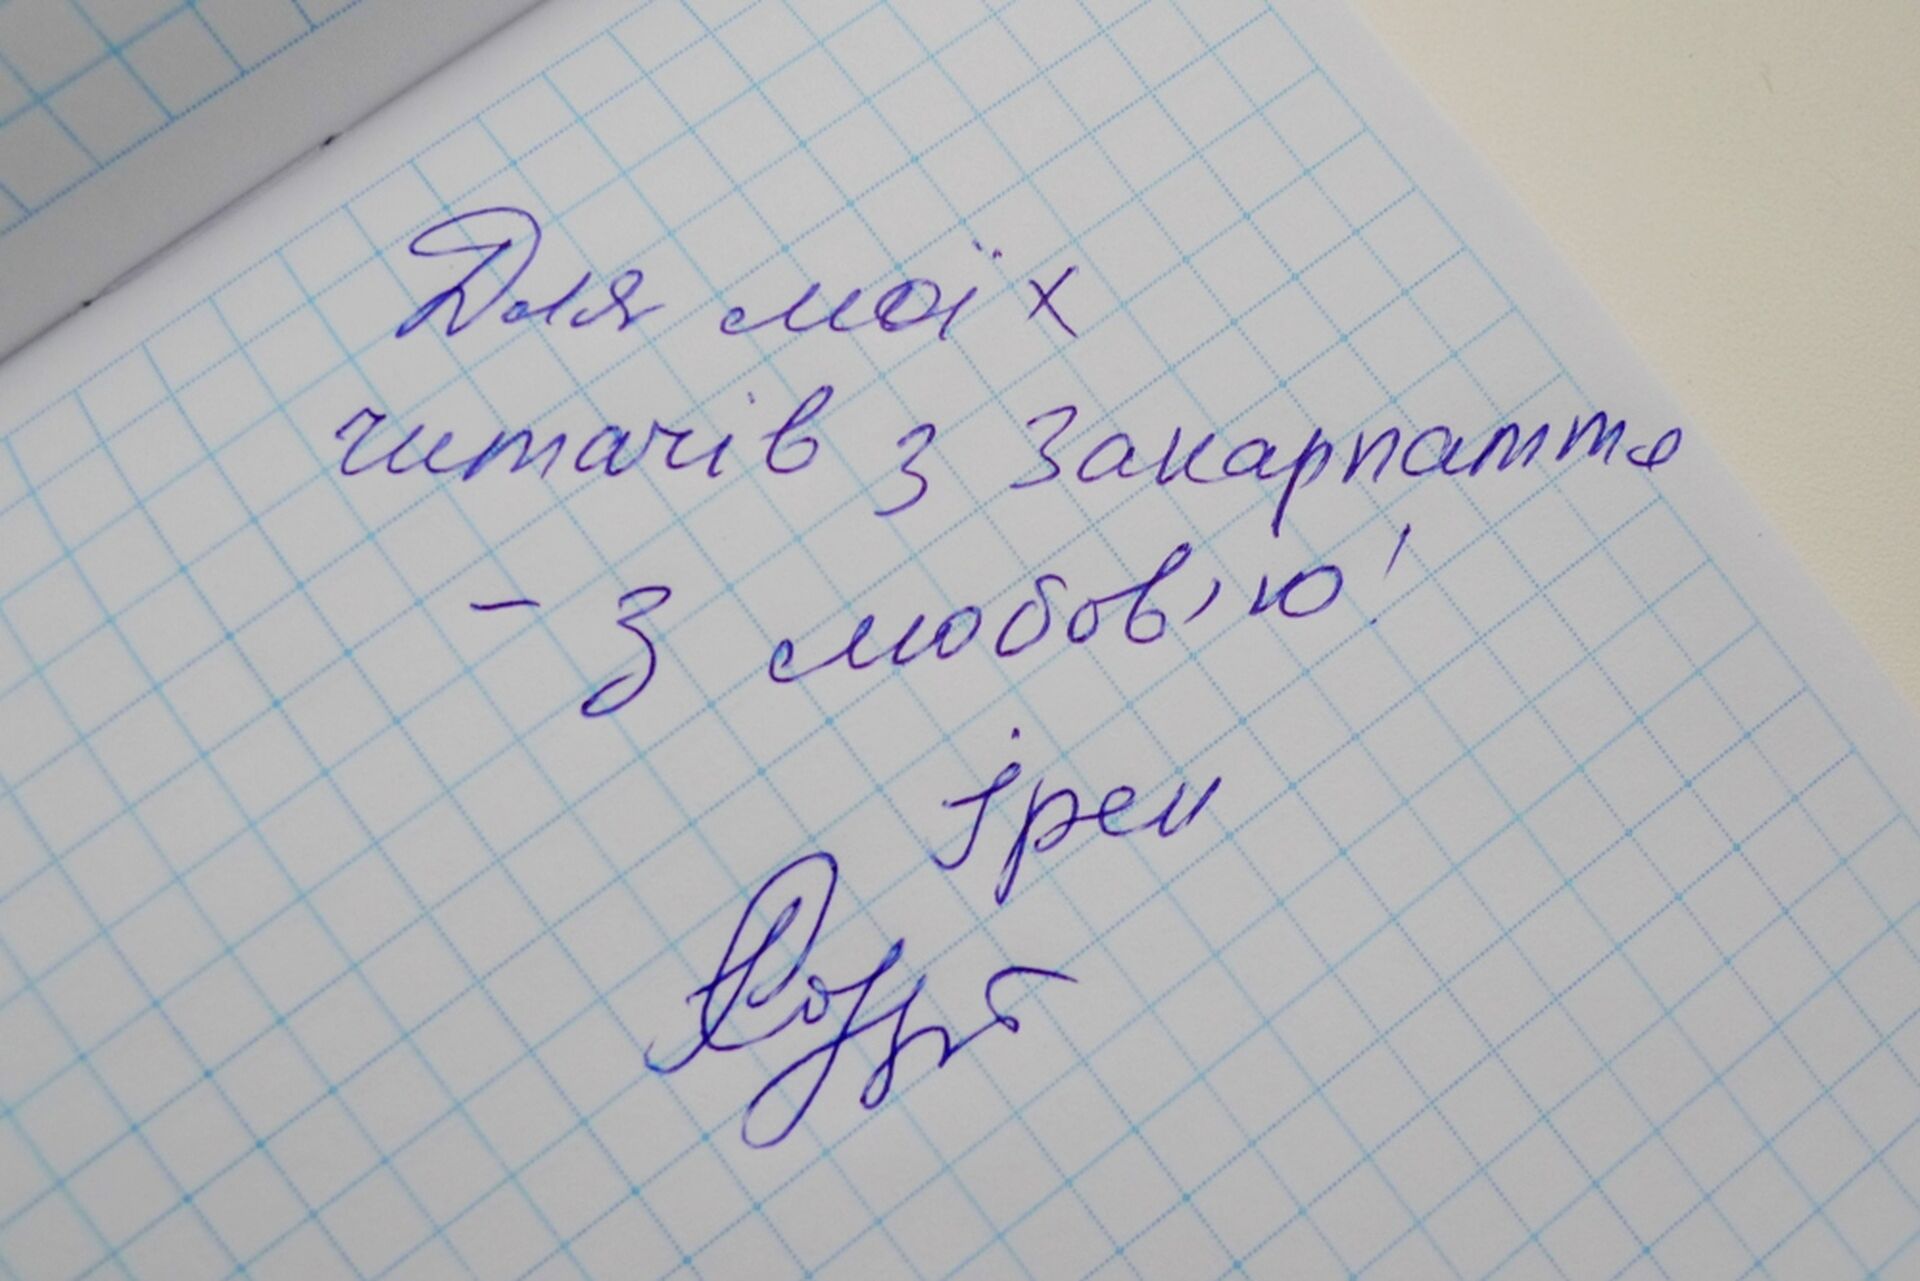 Для моїх
читачів з Закарпаття
- З любов'ю!
Ірен